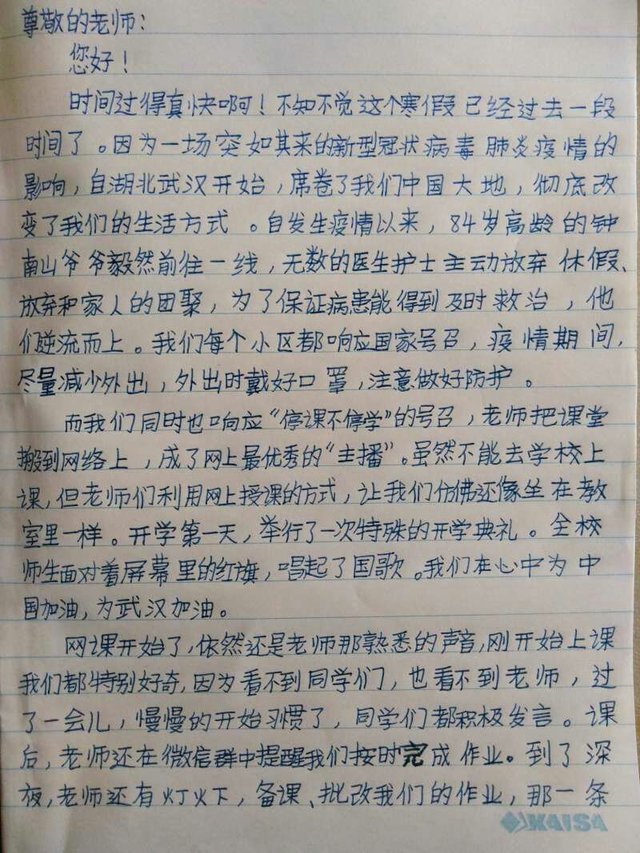 尊敬的老师：
您好！
时间过得真快啊！不知不觉这个寒假已经过去一段
时间了。因为一场突如其来的新型冠状病毒肺炎疫情的
影响，自湖北武汉开始，席卷了我们中国大地，彻底改
变了我们的生活方式。自发生疫情以来，84岁高龄的钟
南山爷爷毅然前往一线，无数的医生护士主动放弃休假、
放弃和家人的团聚，为了保证病患能得到及时救治，他
们逆流而上。我们每个小区都响应国家号召，疫情期间，
尽量减少外出，外出时戴好口罩，注意做好防护。
而我们同时也响应“停课不停学”的号召，老师把课堂
搬到网络上，成了网上最优秀的“主播”。虽然不能去学校上
课，但老师们利用网上授课的方式，让我们仿佛还像坐在教
室里一样。开学第一天，举行了一次特殊的开学典礼。全校
师生面对着屏幕里的红旗，唱起了国歌。我们在心中为中
国加油，为武汉加油。
网课开始了，依然还是老师那熟悉的声音，刚开始上课
我们都特别好奇，因为看不到同学们，也看不到老师，过
了一会儿，慢慢的开始习惯了，同学们都积极发言。课
后，老师还在微信群中提醒我们按时完成作业。到了深
夜，老师还有灯火下，备课、批改我们的作业，那一条
KAISA